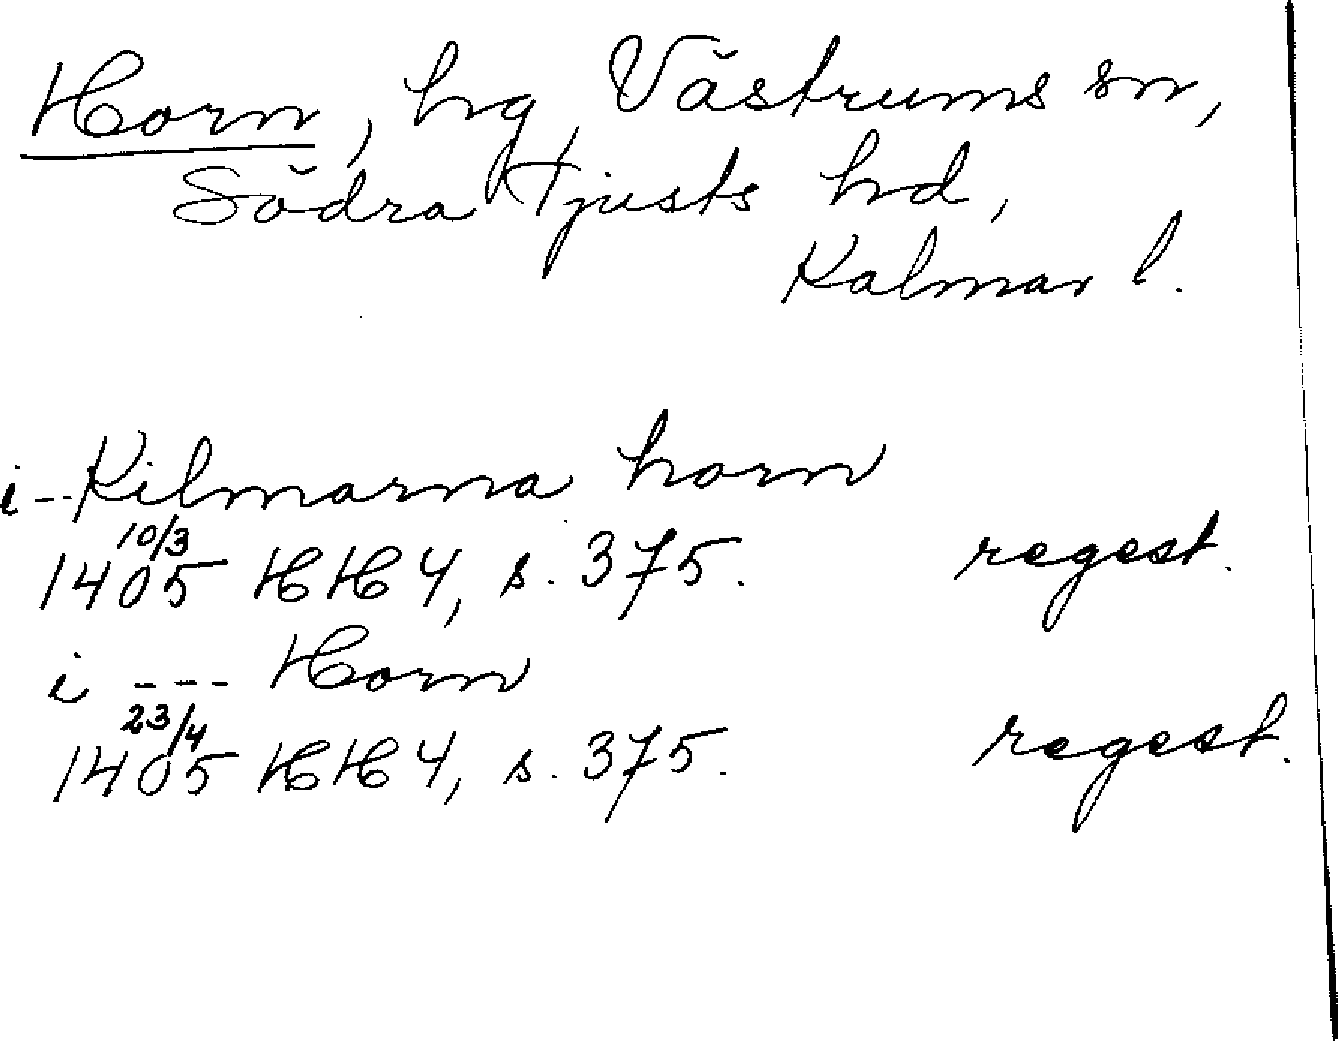 Horn, hg, Västrums sn,
Södra Tjusts hd,
Kalmar l.
i--Kilmarna horn
10/3
1405 HH 4, s. 375. regest.
i --- Horn
23/4
1405 HH 4, s. 375. regest.